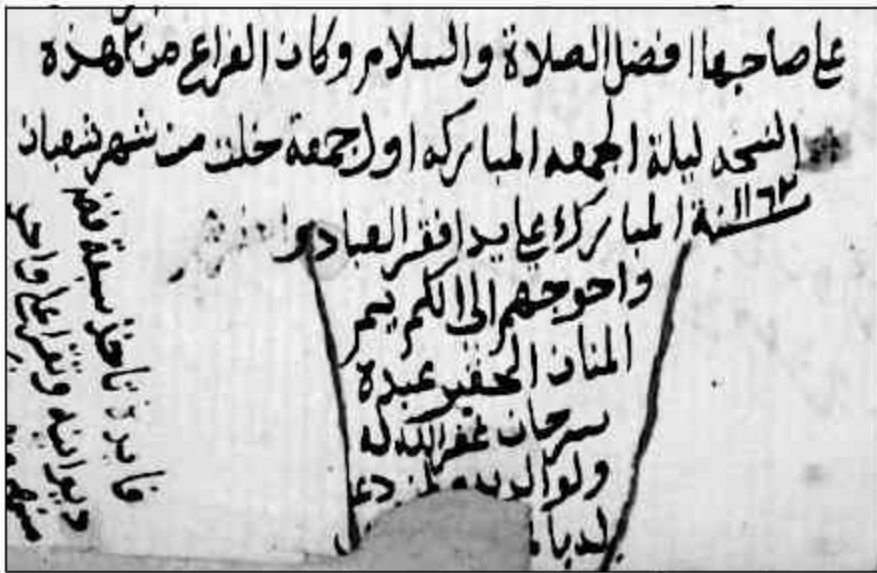 على صاحبها افضل الصلاة والسلام وكان الفراغ من هذه
النسخه ليلة الجمعه المباركه اول جمعة خلت من شهر شعبان
المبارك سنة ١١٦٢ على يد افقر العباد
واحوجهم الى الكريم
المنان الحقير عبده
سرحان غفر الله له
ولوالديه ولمن دعى
فايده ناخذ
ديوانيه وتقرا عليها